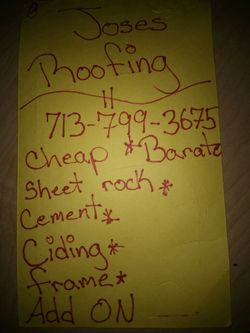 Joses
Roofing
713-799-3675
Cheap *Barato
Sheet rock*
Cement*
Ciding*
frame*
Add ON